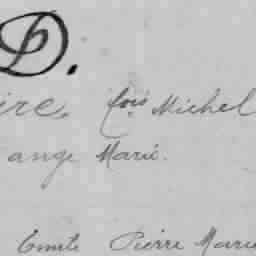 D.
ire. fois Michel
ange Marie.
Comte Pierre Marie